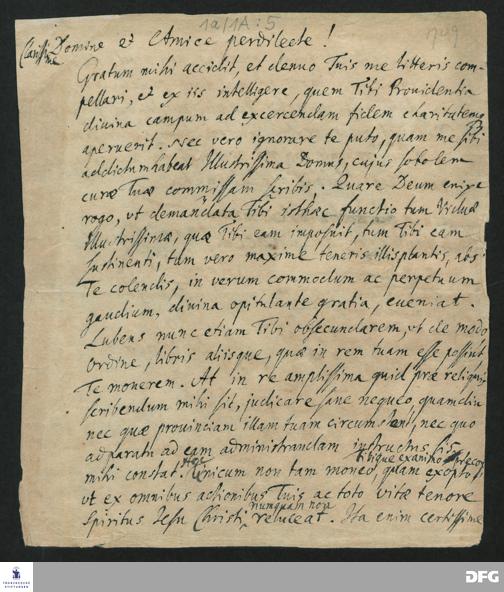 1a/1A:5
1749
Clarissime Domine et Amice perdilecte!
Gratum mihi accidit, et denuo Tuis me litteris com-
pellari, et ex iis intelligere, quem Tibi Providentia
divina campum ad exercendam fidem charitatemq
aperuerit. Nec vero ignorare te puto, quam me sibi
addictum habeat Illustrissima Domus, cujus sobolem
curæ Tuæ commissam scribis. Quare Deum enixe
rogo, ut demandata Tibi isthæc functio tum Viduæ
Illustrissimæ, quæ Tibi eam imposuit, tum Tibi eam
sustinenti, tum vero maxime teneris illis plantis, abs
Te colendis, in verum commodum ac perpetuum
gaudium, divina opitulante gratia, eveniat.
Lubens nunc etiam Tibi obsecundarem, ut de modo
ordine, libris aliisque, quæ in rem tuam esse possint
Te monerem. At in re amplissima quid præ reliquis
scribendum mihi sit, judicare sane nequeo, quamdiu
nec quæ provinciam illam tuam circumstent, nec quo
adparatu ad eam administrandam instructus sis
mihi constat. Hoc unicum non tam moneo, quam exopto
Tibique ex animo
ut ex omnibus actionibus Tuis ac toto vitæ tenore
Spiritus Jesu Christi numquam non reluceat. Ita enim certissime
FRANCKESCHE
STIFTUNGEN
DFG